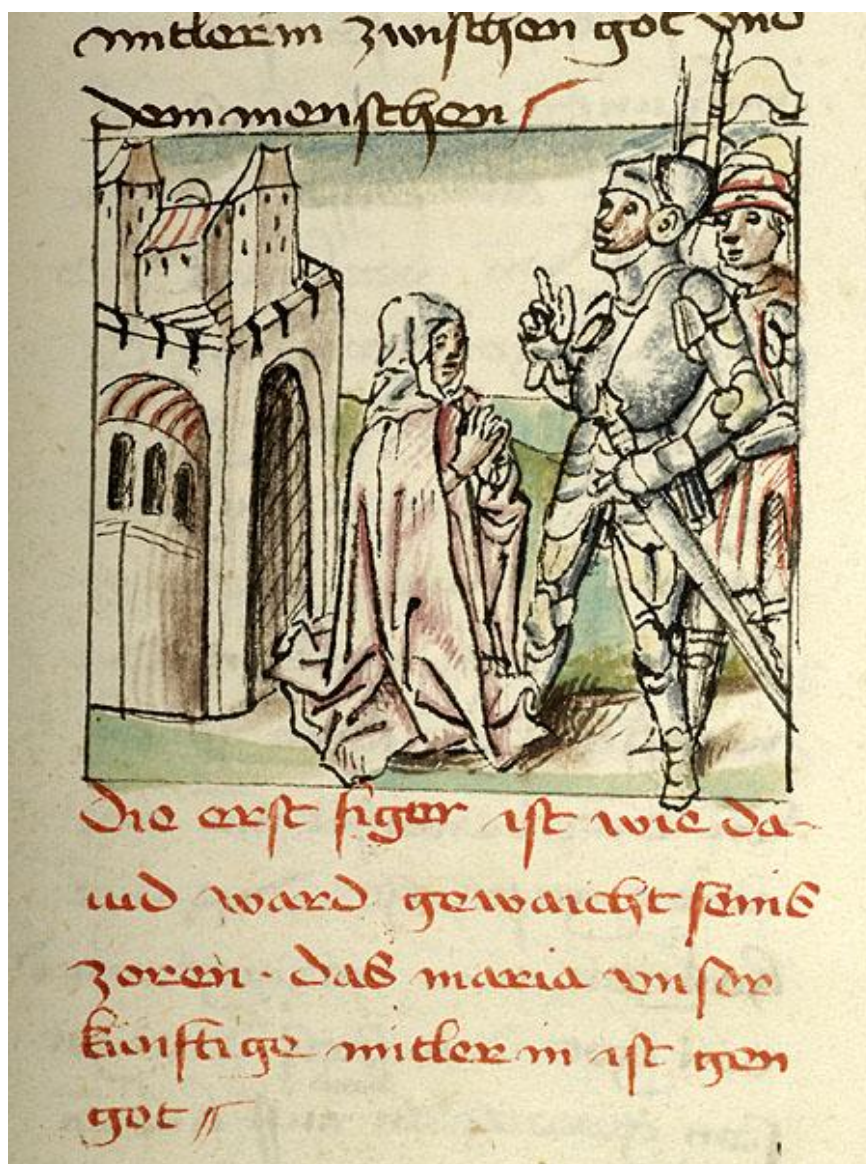 mitlerin zwischen got vnd
dem menschen
die erst figer ist wie da-
uid ward gewaicht seinß
zoren · das maria vnser
künftige mitlerin ist gen
got //